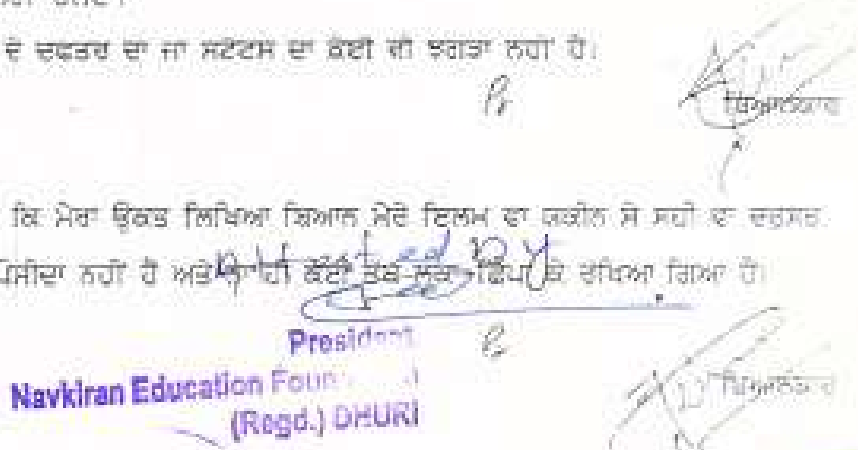 ਦੇ ਦਫਤਰ ਦਾ ਜਾਂ ਸਟੇਟਸ ਦਾ ਕੋਈ ਵੀ ਝਗੜਾ ਨਹੀਂ ਹੈ।
ਬਿਆਨਕਾਰ
ਕਿ ਮੇਰਾ ਉਕਤ ਲਿਖਿਆ ਬਿਆਨ ਮੇਰੇ ਇਲਮ ਵਾ ਯਕੀਨ ਸੇ ਸਹੀ ਵਾ ਦਰੁਸਤ
ਪੋਸੀਦਾ ਨਹੀਂ ਹੈ ਅਤੇ ਨਾ ਹੀ ਕੋਈ ਤੱਥ ਲੁਕਾ ਛਿਪਾ ਕੇ ਰੱਖਿਆ ਗਿਆ ਹੈ।
Attested By
President
Navkiran Education Foun
(Regd.) DHURI
ਬਿਆਨਕਾਰ